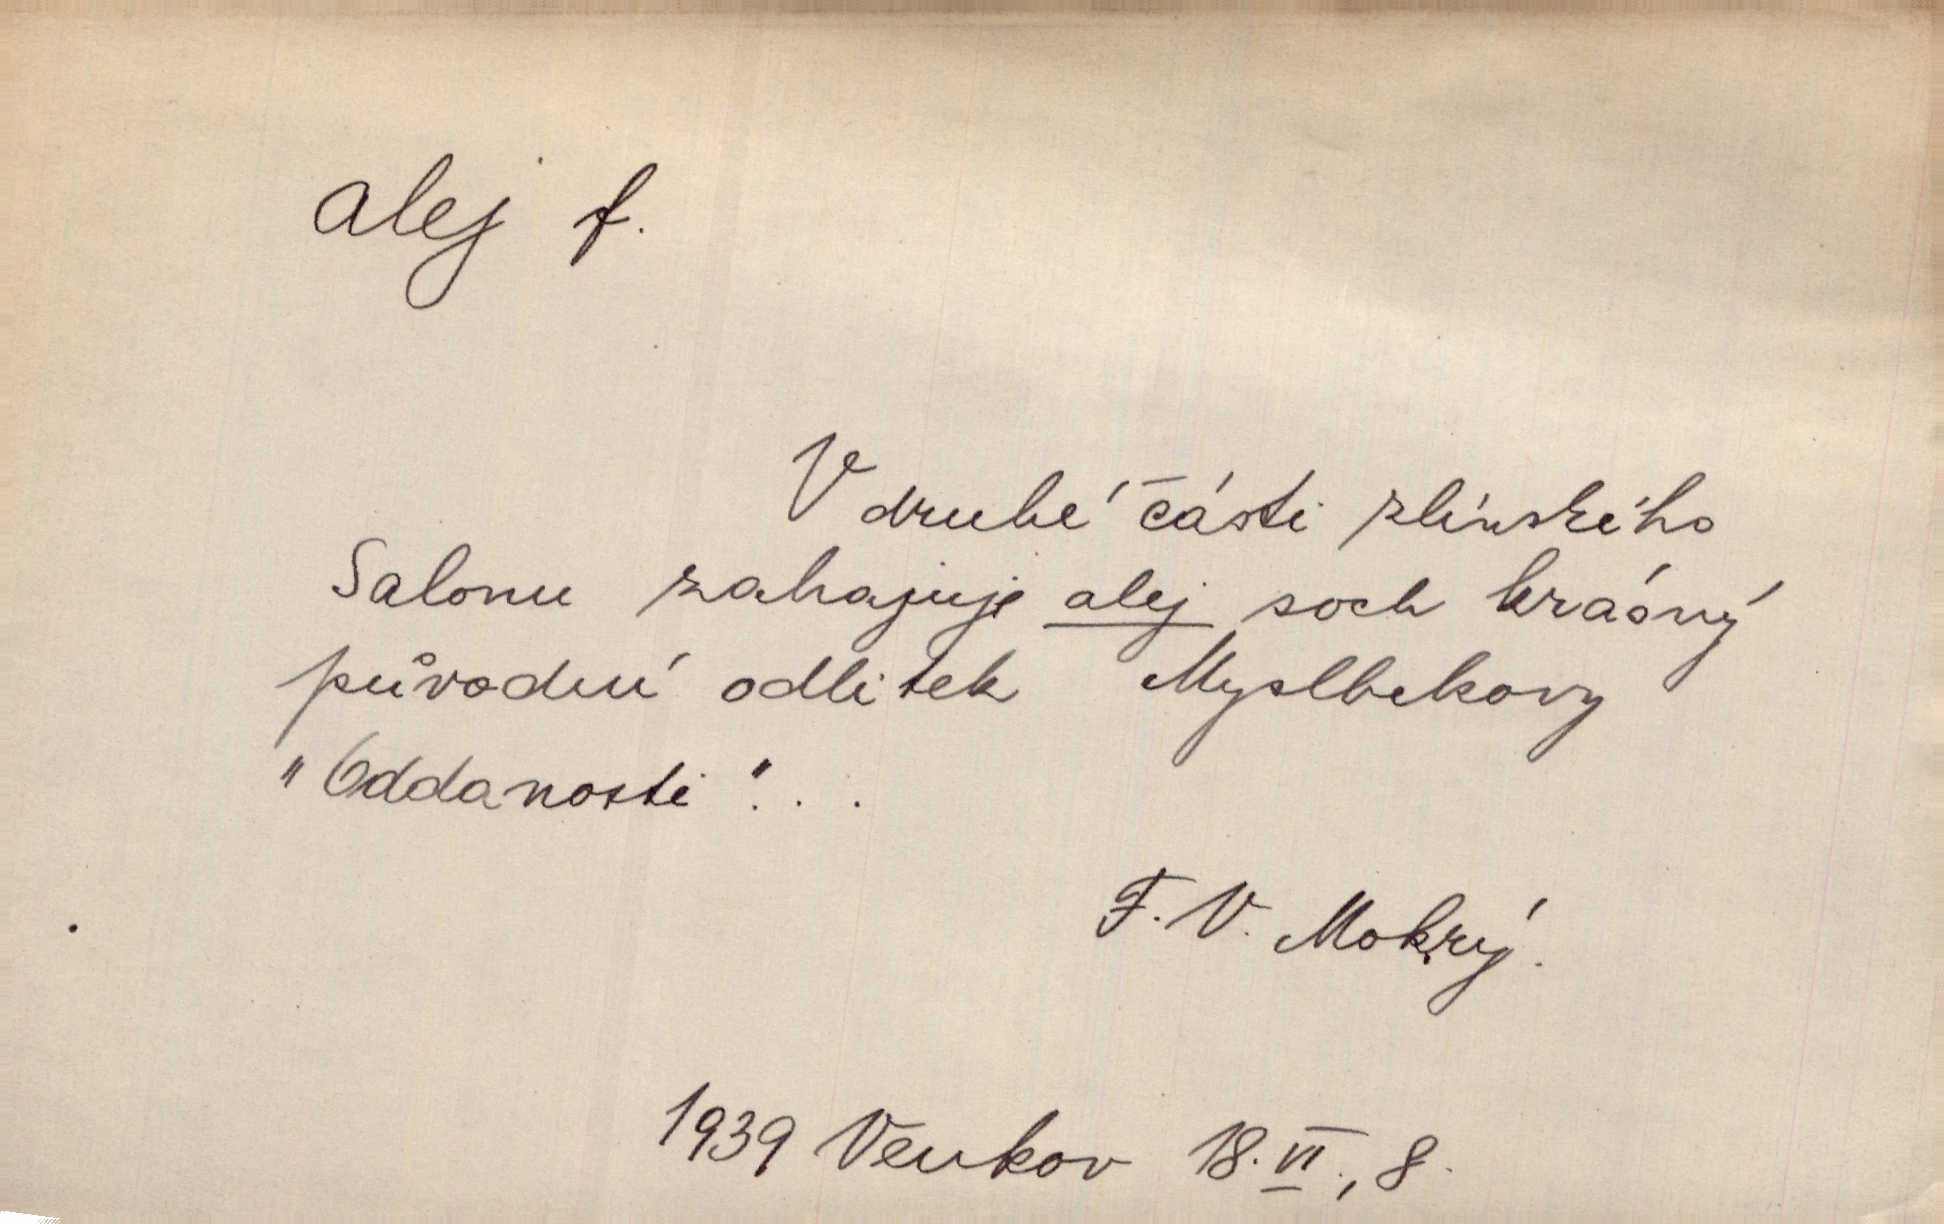 alej f.
V druhé části zlínského
Salonu zahajuje alej soch krásný
původní odlitek Myslbekovy
"Oddanosti"...
F. V. Mokrý.
1939 Venkov 18. VI., 8.